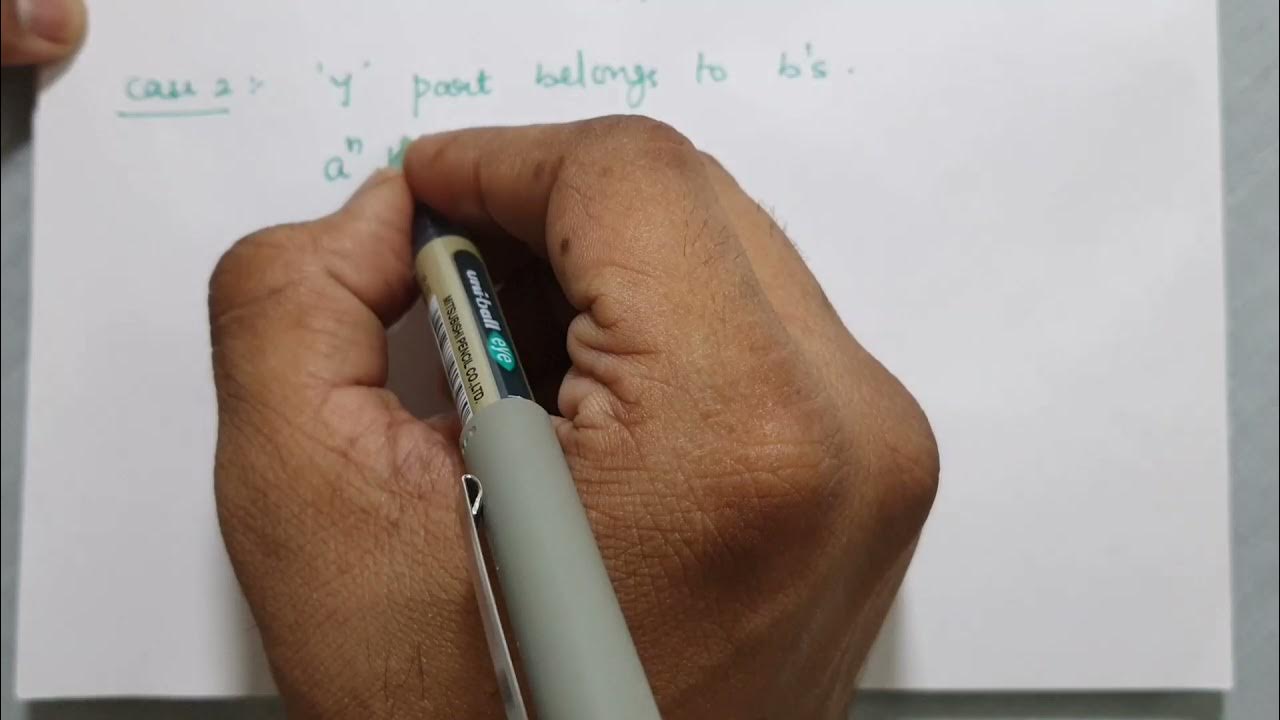 case 2:- 'y' part belongs to b's.
aⁿ
uni-ball eye
MITSUBISHI PENCIL CO.,LTD.